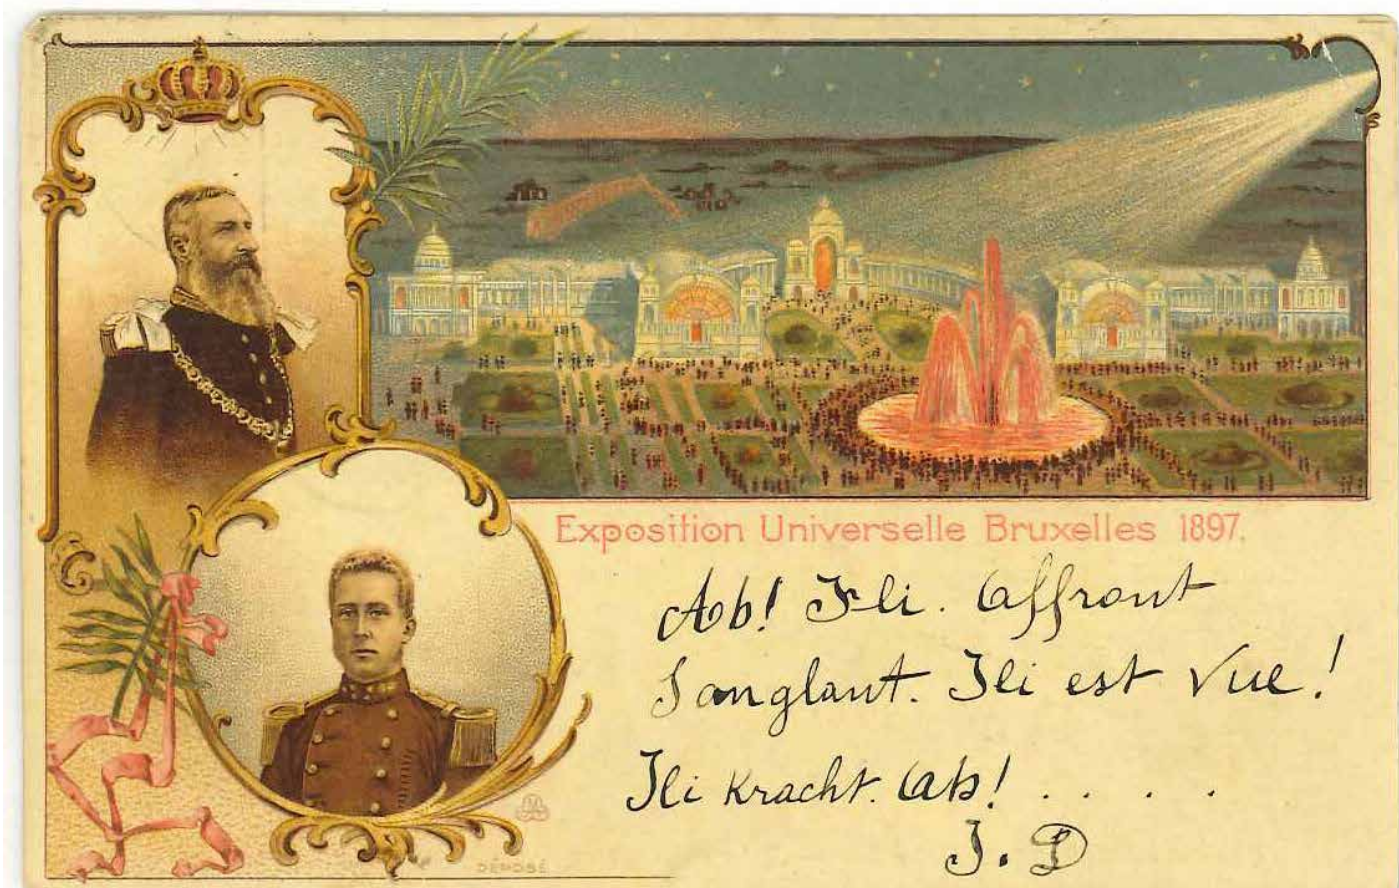 Exposition Universelle Bruxelles 1897.
Ah! Ili. Affront
Sanglant. Ili est Vue!
Ili Kracht. Ah! . . . .
J. D
DÉPOSÉ